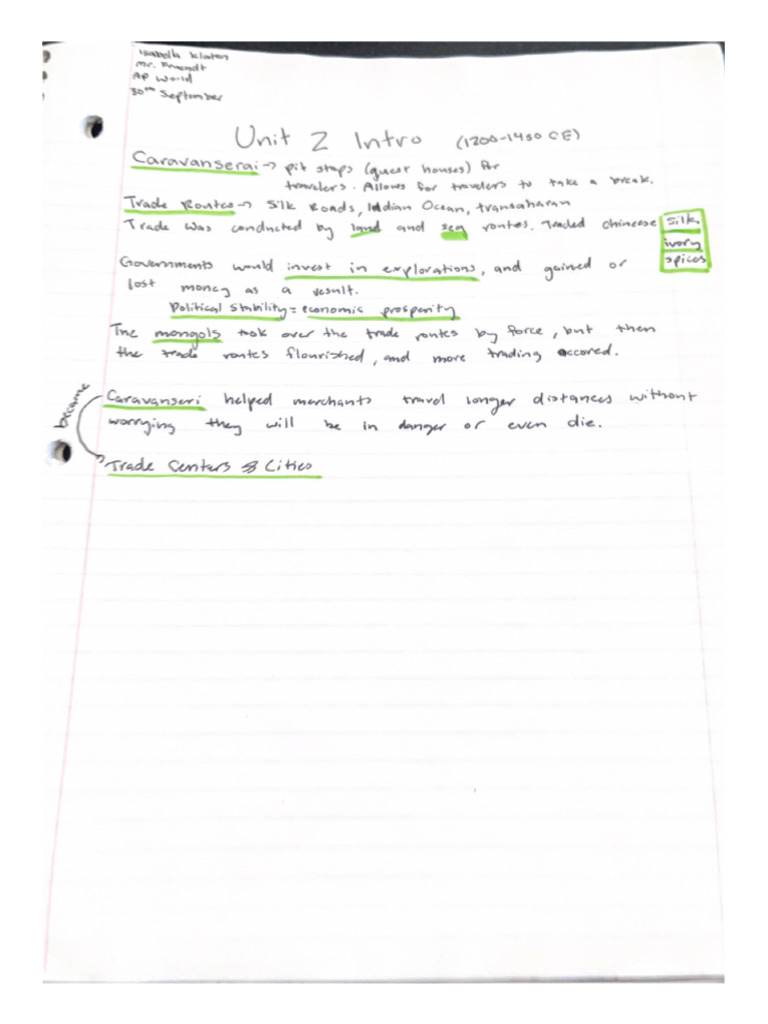 Isabella Klaten
Mr.
AP World
30th September
Unit 2 Intro (1200-1450 CE)
Caravanserai → pit stops (guest houses) for
travelers. Allows for travelers to take a break.
Trade Routes → Silk Roads, Indian Ocean, transaharan
Trade was conducted by land and sea routes. Traded chineese silk
ivory
spices
Governments would invest in explorations, and gained or
lost money as a result.
Political Stability = economic prosperity
The mongols took over the trade routes by force, but then
the trade routes flourished, and more trading occored.
became
Caravanseri helped merchants travel longer distances without
worrying they will be in danger or even die.
Trade Centers & Cities